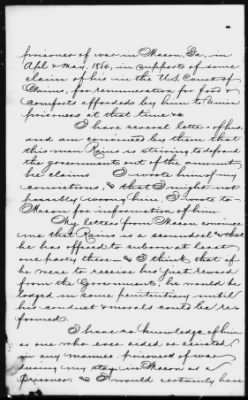 prisoner of war in Macon, Ga, in
Apl & May, 1864, in support of some
claim of his in the U.S. Court of
Claims, for remuneration for food &
comforts afforded by him to Union
prisoners at that time &c
I have several letters of his
and am convinced by them that
this man Rains is striving to defraud
the government out of the amount
he claims I wrote him of my
convictions, & that I might not
possibly wrong him, I wrote to
Macon for information of him
The letters from Macon convince
me that Rains is a scoundrel & that
he has offered to suborn at least
one party there — & I think, that if
he were to receive his just reward
from the Government, he would be
lodged in some penitentiary until
his conduct & morals could be re-
formed.
I have no knowledge of him
as one who ever aided or assisted
in any manner, prisoners of war
during my stay in Macon as a
prisoner & I would certainly have